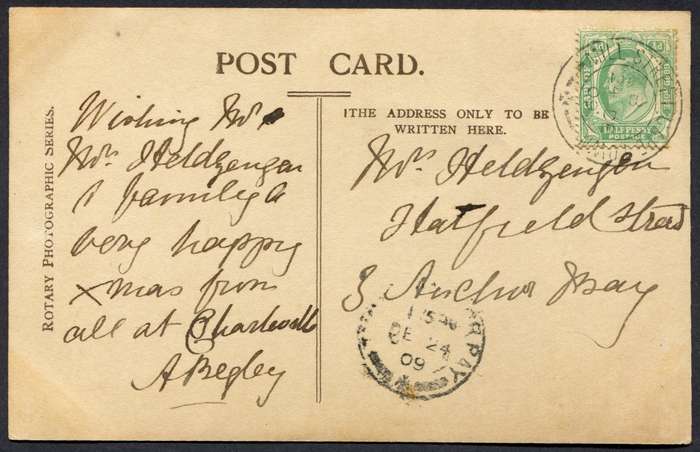 POST CARD.
ROTARY PHOTOGRAPHIC SERIES.
THE ADDRESS ONLY TO BE
WRITTEN HERE.
HALF PENNY
POSTAGE
Wishing Mr &
Mrs Heldzengen
& family a
very happy
xmas from
all at Charlwells
A Begley
Mrs Heldzengen
Hatfield Street
3 Anchor Bay
DE 24
09
R BAY